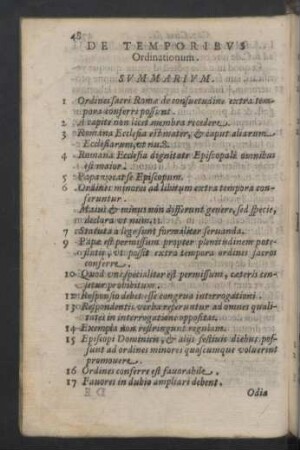 48
DE TEMPORIBVS
Ordinationum.
SVMMARIVM.
1 Ordines sacri Romæ de consuetudine extra tem-
pora conferri possunt.
2 A capite non licet membra recedere.
3 Romana Ecclesia est mater, & caput aliarum
Ecclesiarum, et nu.
4 Romana Ecclesia dignitate Episcopali omnibus
est maior.
5 Papa vocat se Episcopum.
6 Ordines minores ad libitum extra tempora con-
feruntur.
Maius & minus non differunt genere, sed specie,
declara vt num.
7 Statuta legis sunt formaliter seruanda.
9 Papæ est permissum propter plenitudinem pote-
statis, vt possit extra tempora ordines sacros
conferre.
10 Quod vni specialiter est permissum, ceteris cen-
setur prohibitum.
12 Responsio debet esse congrua interrogationi.
13 Respondentis verba referuntur ad omnes quali-
tates in interrogatione oppositas.
14 Exempla non restringunt regulam.
15 Episcopi Dominicis, & alijs festiuis diebus pos-
sunt ad ordines minores quoscumque voluerint
promouere.
16 Ordines conferre est fauorabile.
17 Fauores in dubio ampliari debent.
Odia